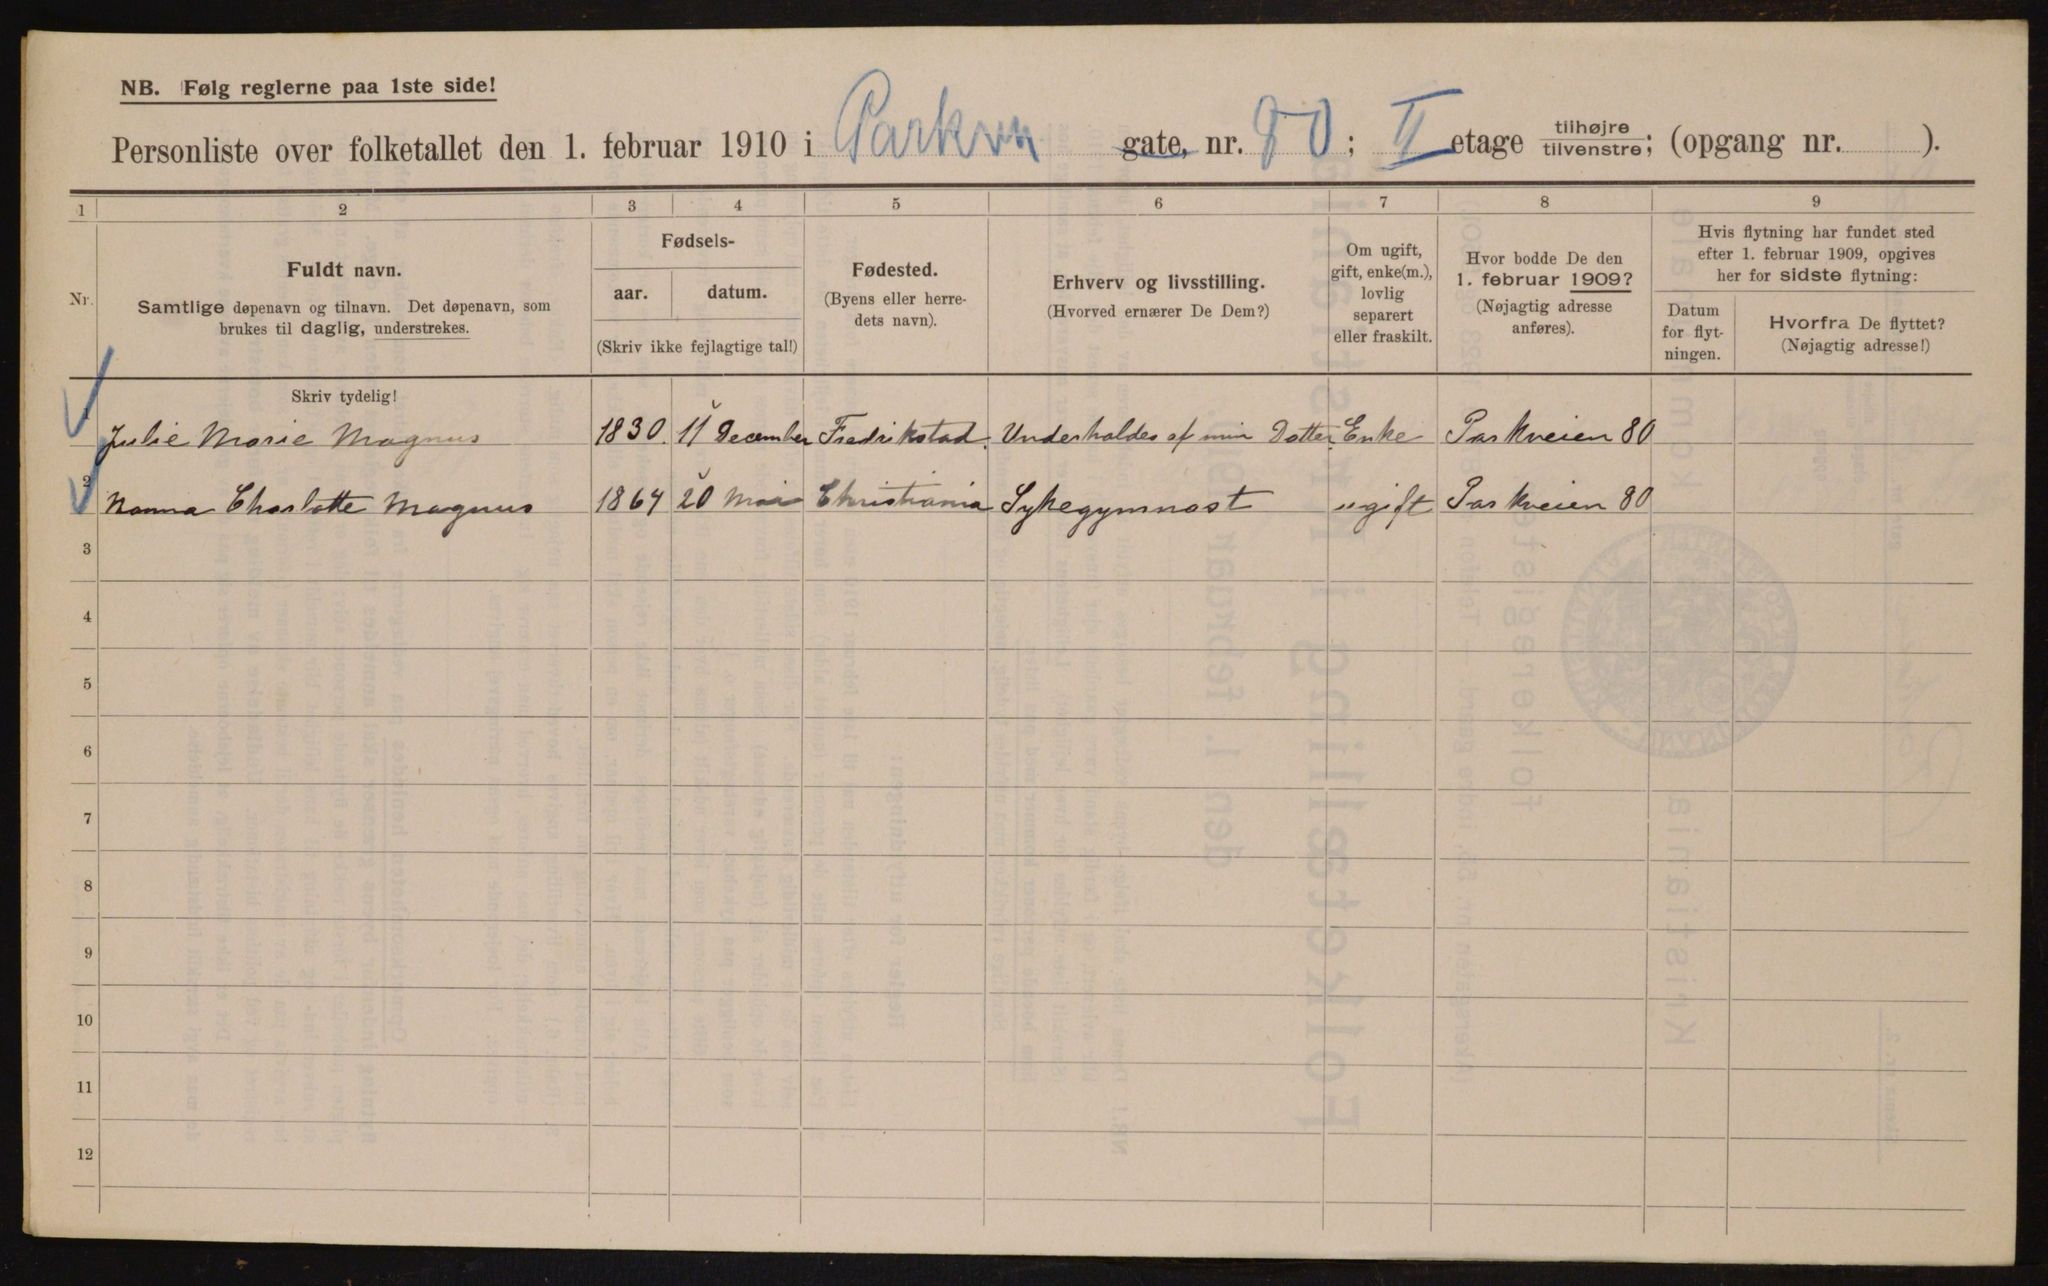 NB. Følg reglerne paa 1ste side!
Personliste over folketallet den 1. februar 1910 i Parkvn gate, nr. 80; II etage tilhøjre tilvenstre; (opgang nr. ).
1 2 3 4 5 6 7 8 9
Nr.
Fuldt navn.
Samtlige døpenavn og tilnavn. Det døpenavn, som
brukes til daglig, understrekes.
Fødsels-
aar. datum.
(Skriv ikke fejlagtige tal!)
Fødested.
(Byens eller herre-
dets navn).
Erhverv og livsstilling.
(Hvorved ernærer De Dem?)
Om ugift,
gift, enke(m.),
lovlig
separert
eller fraskilt.
Hvor bodde De den
1. februar 1909?
(Nøjagtig adresse
anføres).
Hvis flytning har fundet sted
efter 1. februar 1909, opgives
her for sidste flytning:
Datum
for flyt-
ningen.
Hvorfra De flyttet?
(Nøjagtig adresse!)
Skriv tydelig!
1 Julie Marie Magnus 1830. 11 December Fredrikstad. Underholdes af min Datter. Enke Parkveien 80
2 Nanna Charlotte Magnus 1864 20 Mai Christiania Sykegymnast ugift Parkveien 80
3
4
5
6
7
8
9
10
11
12